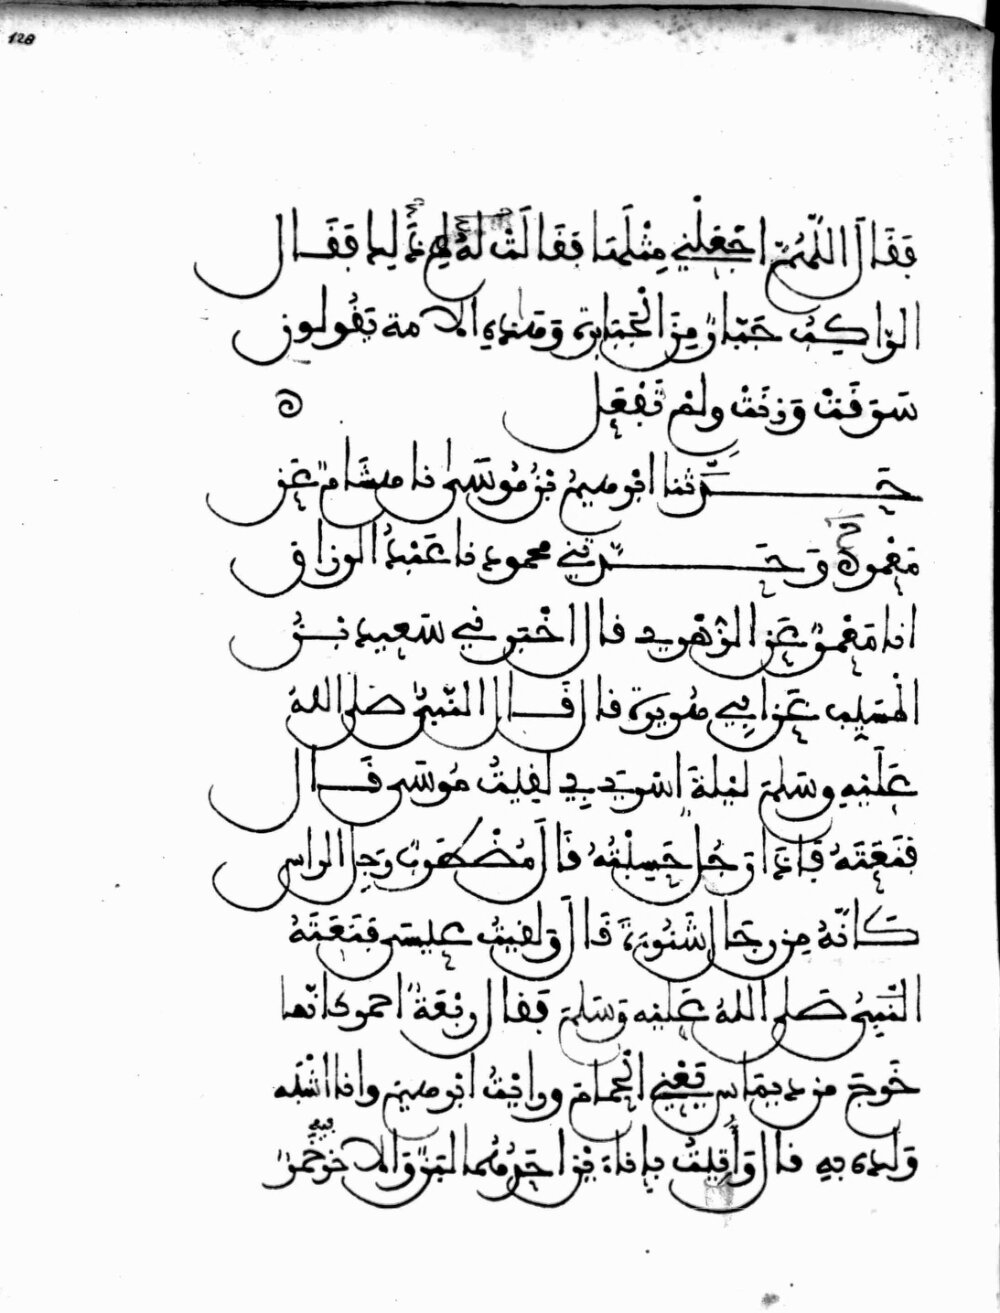 128
فَقَالَ اللَّهُمَّ اجْعَلْنِي مِثْلَهَا فَقَالَتْ لَهُ لِمَ ذَلِكَ فَقَال
الرَّاكِبُ جَبَّارٌ مِنَ الْجَبَابِرَةِ وَهَذِهِ الامة يَقُولون
سَرَقْتْ وَزنَيْتْ ولَمْ تَفْعَل
حَدَّثنا ابْرهيمُ بْنُ مُوسَى نا هِشَامٌ عَن
مَعْمَرٍ ح وَحَدَّثَنِي محمود نا عَبْدُ الرزاق
انا مَعْمَرٌ عَنِ الزُّهْرِي قال اخْبَرَنِي سَعِيدُ بْنُ
الْمُسَيِّبِ عَن ابِي هُرَيرَةَ قال قَال النَّبِيُّ صَلى اللهُ
عَلَيْهِ وسَلم لَيْلَةَ اسْرِيَ بِي لَقِيتُ مُوسَى قَال
فَنَعَتَهُ فَإذَا رَجُلٌ حَسِبْتُهُ قَالَ مُضْطَرِبٌ رَجِلُ الراس
كَأنَّهُ مِن رِجَالِ شَنُوءَةَ قَالَ وَلَقِيتُ عِيسَى فَنَعَتَهُ
النَّبِيُّ صَلى اللهُ عَلَيْهِ وَسَلم فَقَال رَبْعَةٌ احمر كانّما
خَرَجَ من ديمَاس يَعْنِي الْحَمامَ ورايْتُ ابْرهيم وانا اشْبَه
وَلده بهِ قال وَأُتِيتُ بِإنَاءَيْنِ احَدُهُما لَبَنٌ وَالاخر فيه خَمْرٌ